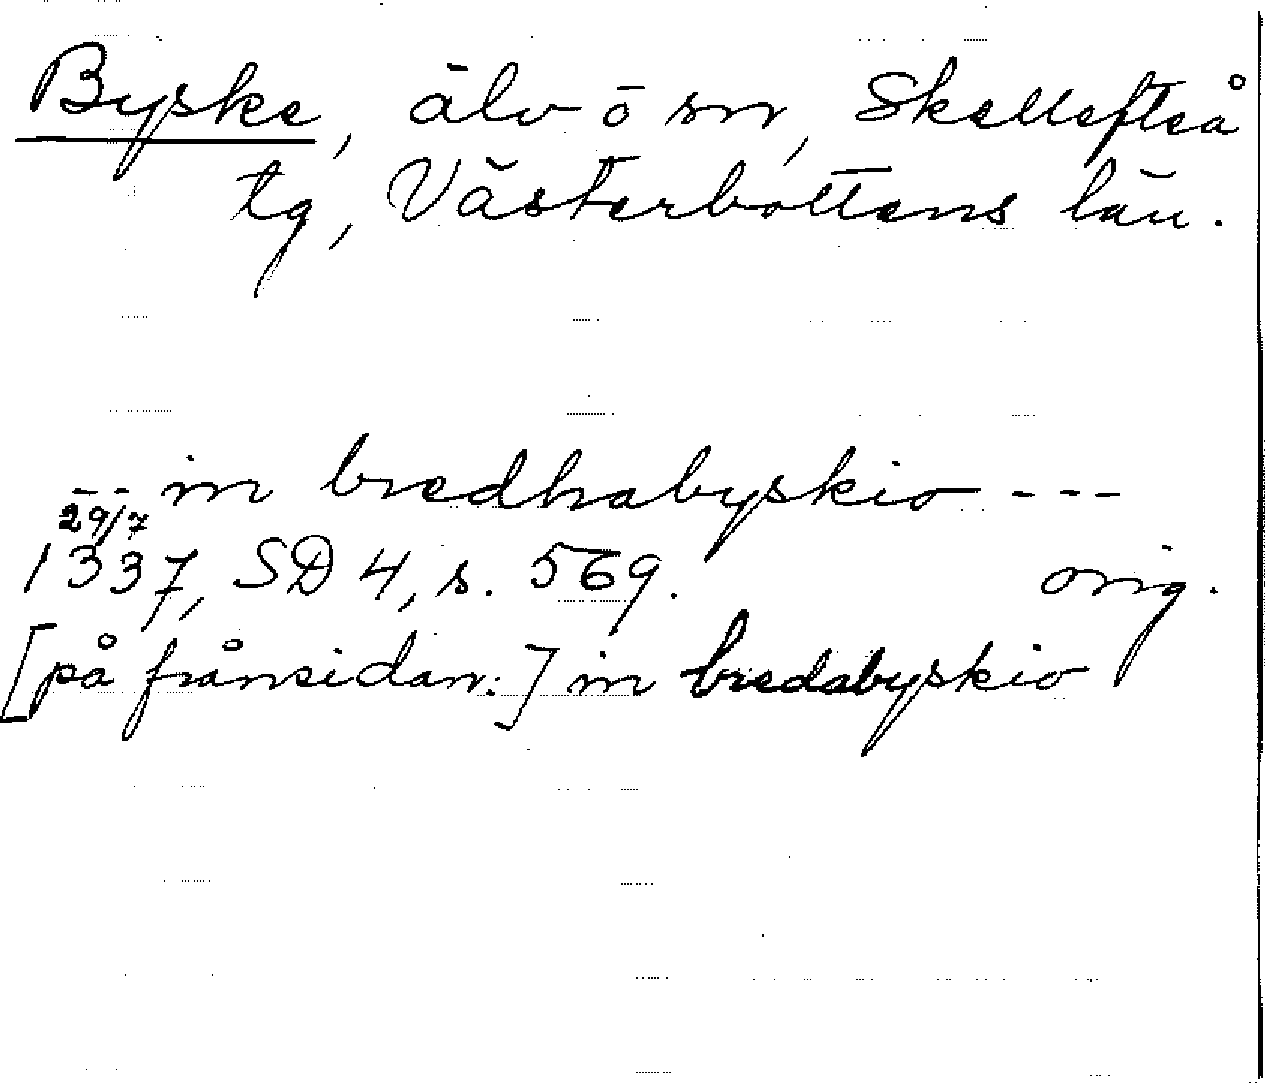 Byske, älv o sn, Skellefteå
tg, Västerbottens län.
-- in bredhabyskio ---
29/7
1337, SD 4, s. 569. orig.
[på frånsidan:] in bredabyskio